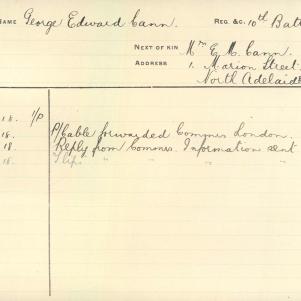 NAME George Edward Cann. REG. &C. 10th Batt
NEXT OF KIN Mrs E. M. Cann.
ADDRESS 1. Marion Street.
North Adelaide
18. 1/P P/Cable forwarded Commrs London.
18. Reply from Commrs. Information sent
18. Slips " " "